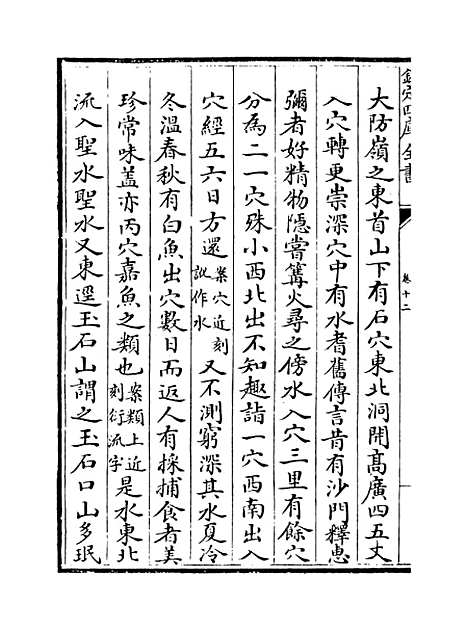 欽定四庫全書
卷十二
大防嶺之東首山下有石穴東北洞開高廣四五丈
入穴轉更崇深穴中有水耆舊傳言昔有沙門釋惠
彌者好精物隱嘗篝火尋之傍水入穴三里有餘穴
分為二一穴殊小西北出不知趣詣一穴西南出入
穴經五六日方還案穴近刻訛作水又不測窮深其水夏冷
冬溫春秋有白魚出穴數日而返人有採捕食者美
珍常味蓋亦丙穴嘉魚之類也案類上近刻衍流字是水東北
流入聖水聖水又東逕玉石山謂之玉石口山多珉